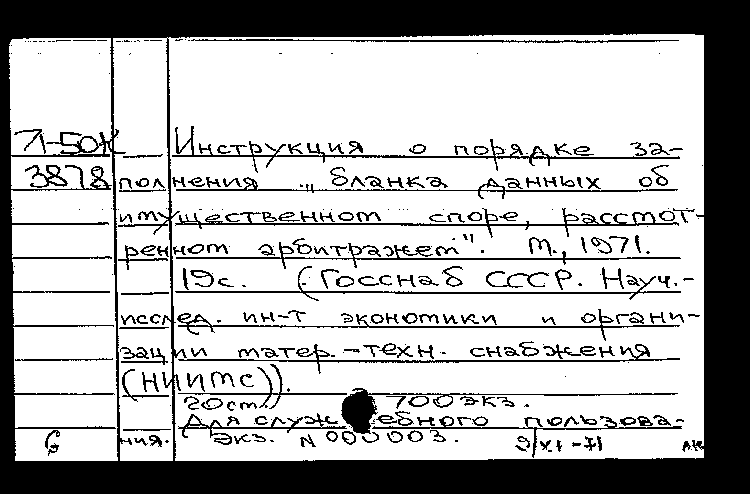 71-50к Инструкция о порядке за-
3878 полнения „бланка данных об
имущественном споре, рассмот-
ренном арбитражем". М., 1971.
19с. (Госснаб СССР. Науч.-
исслед. ин-т экономики и органи-
зации матер.-техн. снабжения
(НИИМС)).
20см. 700экз.
Для служебного пользова-
ния. Экз. N 000003. 9/XI-71